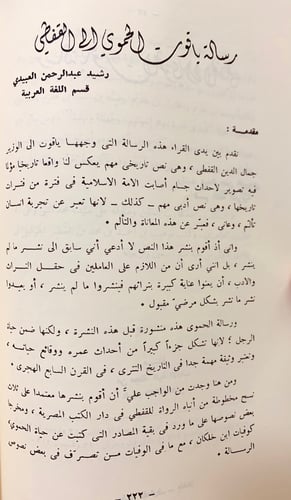 رسالة ياقوت الحموي الى القفطي
رشيد عبدالرحمن العبيدي
قسم اللغة العربية
مقدمة :
نقدم بين يدى القراء هذه الرسالة التى وجهها ياقوت الى الوزير
جمال الدين القفطي ، وهى نص تاريخي مهم يعكس لنا واقعا تاريخيا مؤلما
فيه تصوير لاحداث جسام أصابت الامة الاسلامية فى فترة من فترات
تاريخها ، وهى نص أدبى مهم ـ كذلك ـ لانها تعبر عن تجربة انسان
تألم ، وعانى ، فعبّر عن هذه المعاناة والتألم .
وانى اذ أقوم بنشر هذا النص لا أدعي أني سابق الى نشر ما لم
ينشر ، بل اننى أرى أن من اللازم على العاملين فى حقل التراث
والادب ، أن يعنوا عناية كبيرة بتراثهم فينشروا ما لم ينشر ، أو يعيدوا
نشر ما نشر بشكل مرضيّ مقبول .
ورسالة الحموى هذه منشورة قبل هذه النشرة ، ولكنها ضمن حياة
الرجل ؛ لانها تشكل جزءاً كبيراً من أحداث عمره ووقائع حياته ،
وتعتبر وثيقة مهمة جدا فى التاريخ التترى ، فى القرن السابع الهجرى .
ومن هنا وجدت من الواجب عليّ أن أقوم بنشرها معتمدا على ثلاث
نسخ مخطوطة من أنباه الرواة للقفطي فى دار الكتب المصرية ، ومخرجا
بعض نصوصها على ما ورد فى بقية المصادر التى كتبت عن حياة الحموى ،
كوفيات ابن خلكان ، مع ما فى الوفيات من تصرّف فى بعض نصوص
الرسالة .
ـ ٢٢٢ ـ